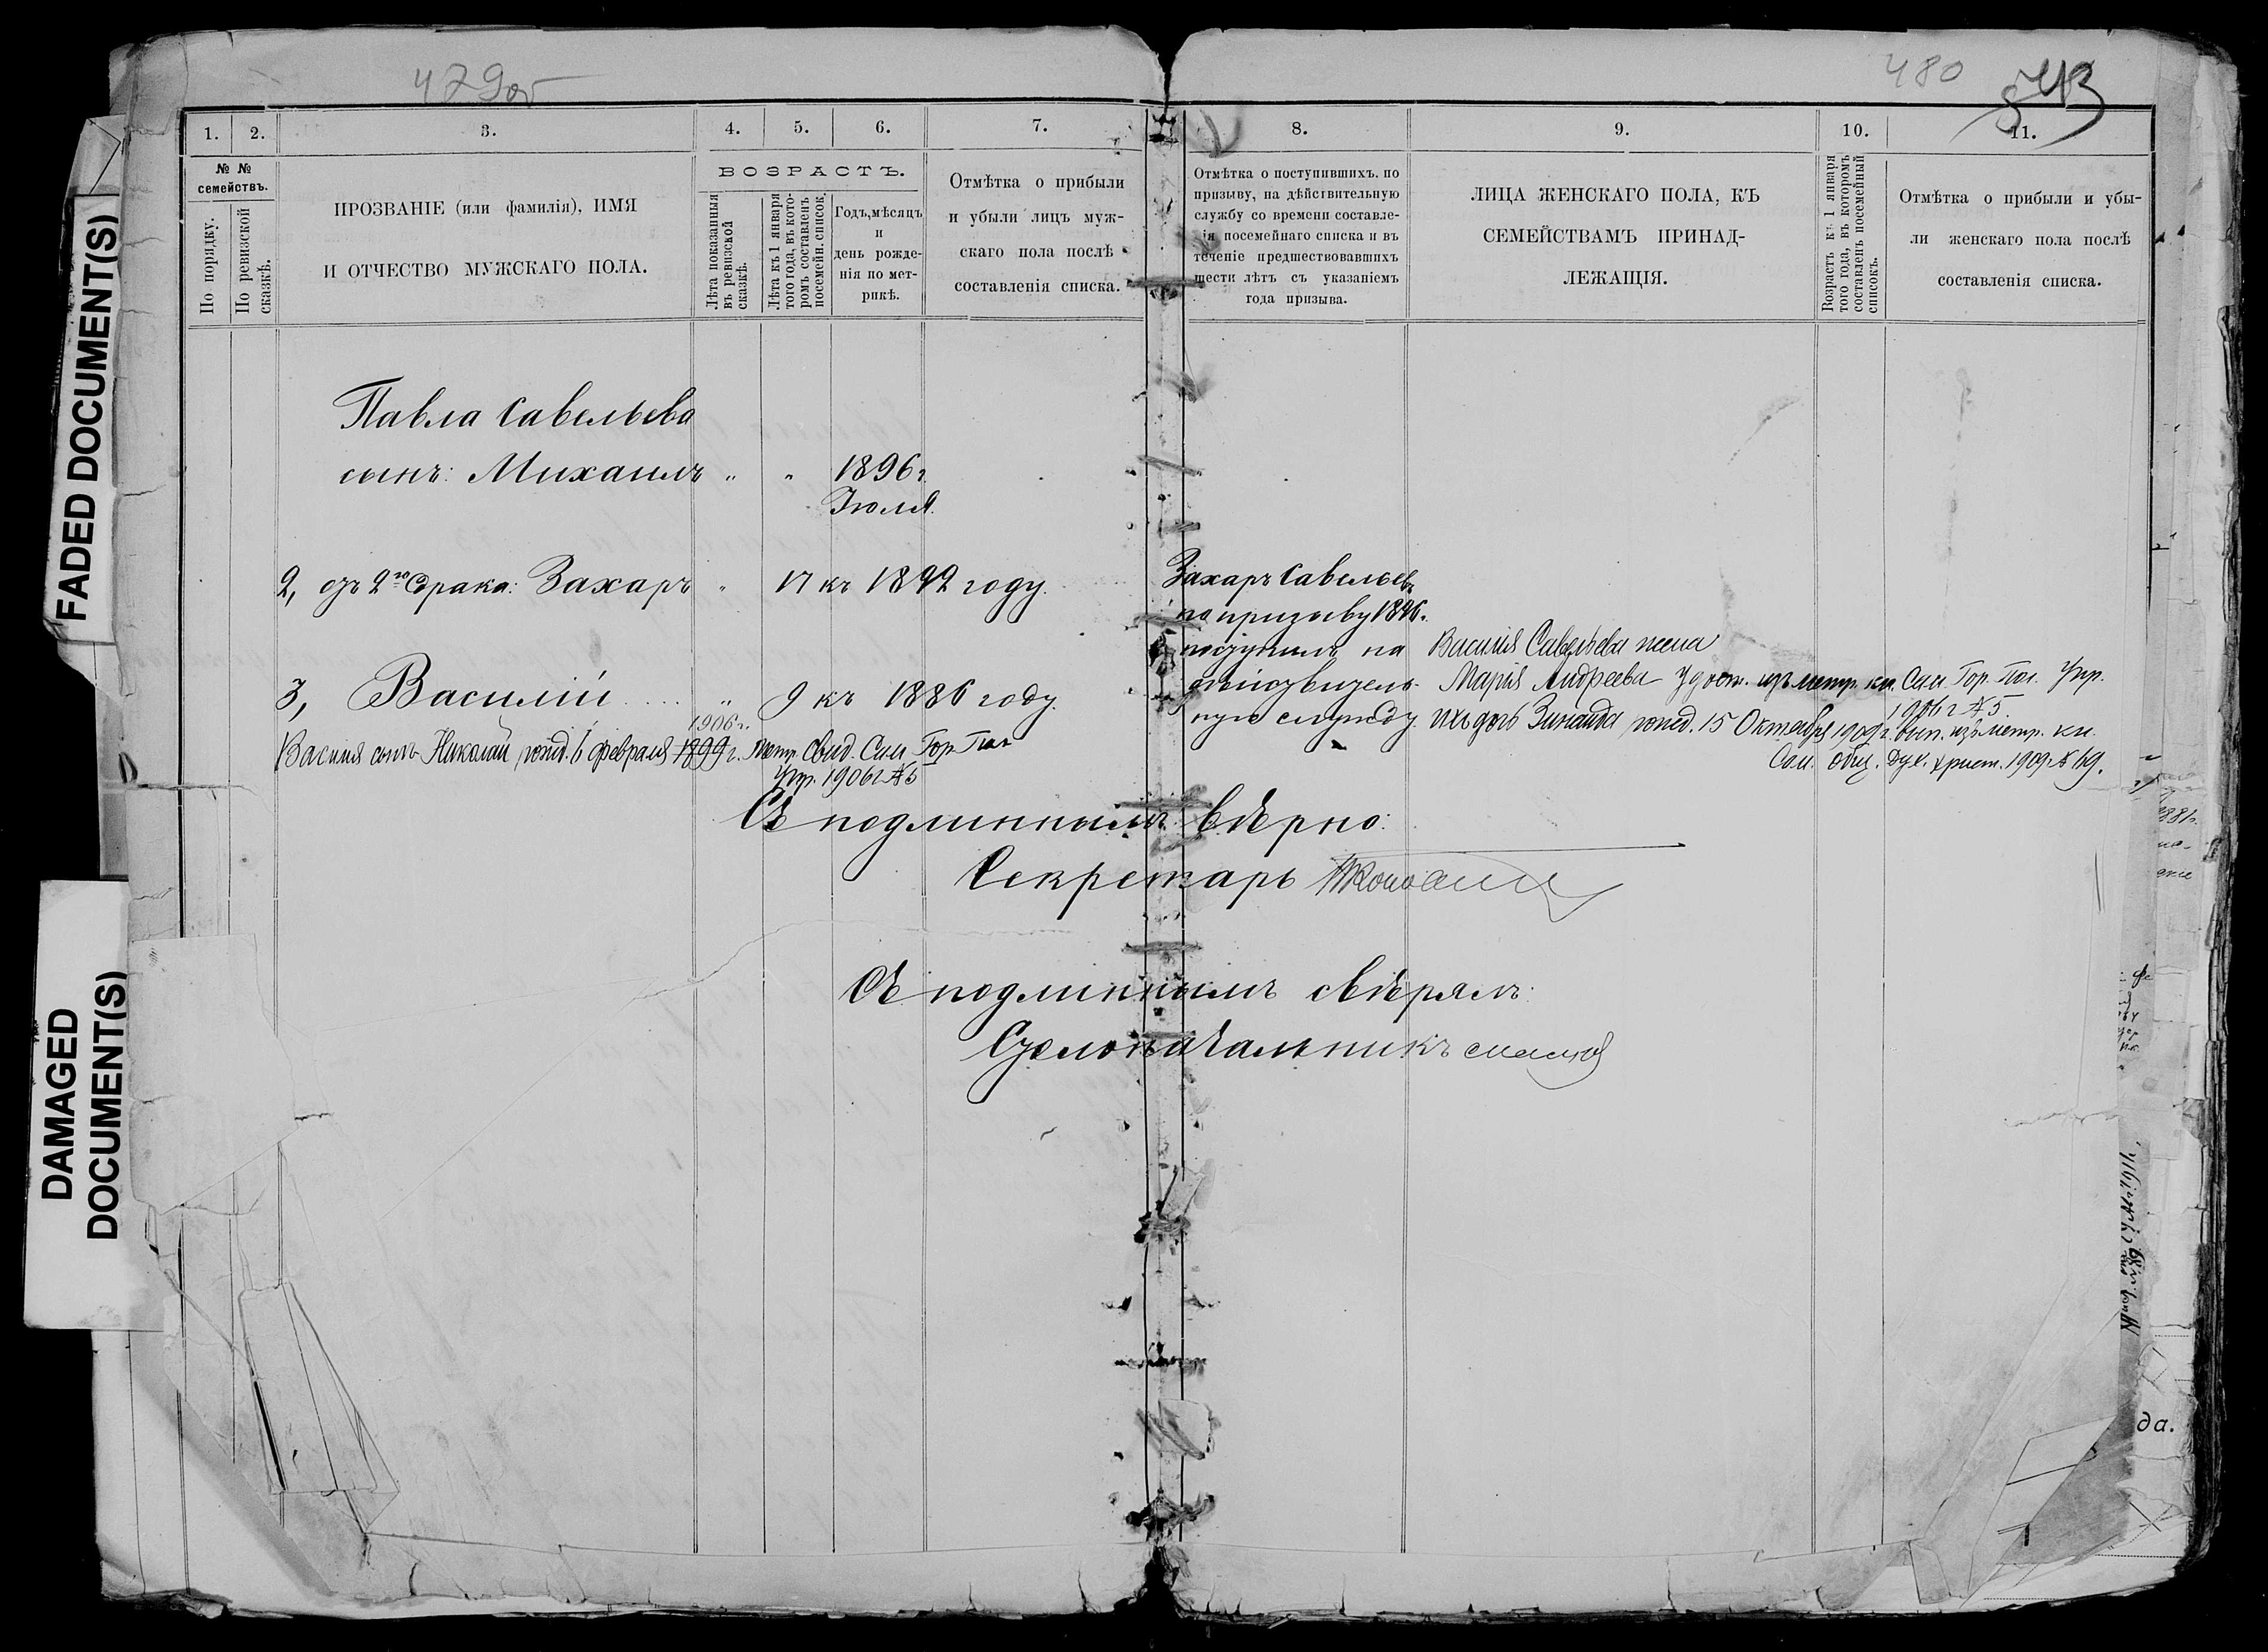 479об
480
543
FADED DOCUMENT(S)
DAMAGED
DOCUMENT(S)
1. 2. 3. 4. 5. 6. 7. 8. 9. 10. 11.
№ №
семействъ.
По порядку.
По ревизской
сказкѣ.
ПРОЗВАНІЕ (или фамилія), ИМЯ
И ОТЧЕСТВО МУЖСКАГО ПОЛА.
ВОЗРАСТЪ.
Лѣта показанныя
въ ревизской
сказкѣ.
Лѣта къ 1 января
того года, въ кото-
ромъ составленъ
посемейн. список.
Годъ, мѣсяцъ
и
день рожде-
нія по мет-
рикѣ.
Отмѣтка о прибыли
и убыли лицъ муж-
скаго пола послѣ
составленія списка.
Отмѣтка о поступившихъ. по
призыву, на дѣйствительную
службу со времени составле-
ія посемейнаго списка и въ
теченіе предшествовавшихъ
шести лѣтъ съ указаніемъ
года призыва.
ЛИЦА ЖЕНСКАГО ПОЛА, КЪ
СЕМЕЙСТВАМЪ ПРИНАД-
ЛЕЖАЩІЯ.
Возрастъ къ 1 января
того года, въ которомъ
составленъ посемейный
списокъ.
Отмѣтка о прибыли и убы-
ли женскаго пола послѣ
составленія списка.
Павла Савельева
сынъ: Михаилъ " " 1896 г.
Іюля
2, отъ 2го брака: Захаръ " 17 къ 1892 году.
Захаръ Савельевъ
по призыву 1896.
поступилъ на
дѣйствитель-
ную службу.
3, Василій .... " 9 къ 1886 году.
Василія Савельева жена
Марія Андреева Удост. изъ метр. кн. Сам. Гор. Пол. Упр.
1906 г № 5.
ихъ дочь Зинаида рожд. 15 Октября 1909 г. вып. изъ метр. кн.
Сам. общ. дух. христ. 1909 № 19.
1906 г.
Василія сынъ Николай рожд. 6 февраля 1899 г. Метр. Свид. Сам. Гор. Пол
Упр. 1906 г № 5
Съ подлиннымъ вѣрно:
Секретарь
Съ подлиннымъ свѣрялъ:
Столоначальникъ
да.